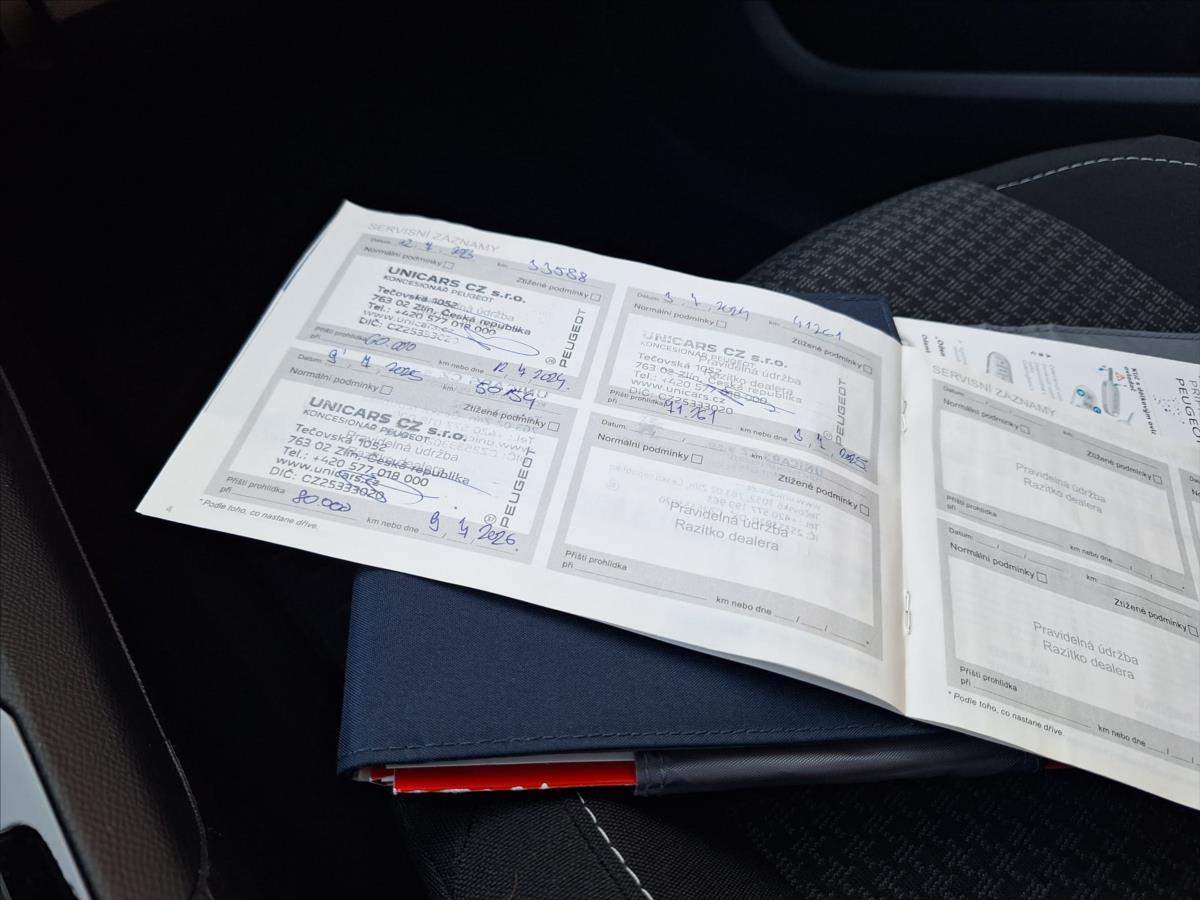 SERVISNÍ ZÁZNAMY
Datum: 12. 4. 2023 km 33588
Normální podmínky Ztížené podmínky
UNICARS CZ s.r.o.
KONCESIONÁŘ PEUGEOT
Tečovská 1052
763 02 Zlín, Česká republika
Tel.: +420 577 018 000
www.unicars.cz
DIČ: CZ25333020
PEUGEOT
Příští prohlídka
při 60.000 km nebo dne 12. 4. 2024.
Datum: 9. 4. 2025 km
Normální podmínky Ztížené podmínky
UNICARS CZ s.r.o.
KONCESIONÁŘ PEUGEOT
Tečovská 1052
763 02 Zlín, Česká republika
Tel.: +420 577 018 000
www.unicars.cz
DIČ: CZ25333020
PEUGEOT
Příští prohlídka
při 80.000 km nebo dne 9. 4. 2026.
* Podle toho, co nastane dříve.
4
Datum: 3. 4. 2024 km 41261
Normální podmínky Ztížené podmínky
UNICARS CZ s.r.o.
KONCESIONÁŘ PEUGEOT
Pravidelná údržba
Razítko dealera
Tečovská 1052
763 02 Zlín, Česká republika
Tel.: +420 577 018 000
www.unicars.cz
DIČ: CZ25333020
PEUGEOT
Příští prohlídka
při 71 261 km nebo dne 3. 4. 2025
Datum: km
Normální podmínky Ztížené podmínky
Pravidelná údržba
Razítko dealera
Příští prohlídka
při km nebo dne *
SERVISNÍ ZÁZNAMY
Datum: km
Normální podmínky Ztížené podmínky
Pravidelná údržba
Razítko dealera
Příští prohlídka
při km nebo dne
Datum: km
Normální podmínky Ztížené podmínky
Pravidelná údržba
Razítko dealera
Příští prohlídka
při km nebo dne
* Podle toho, co nastane dříve.